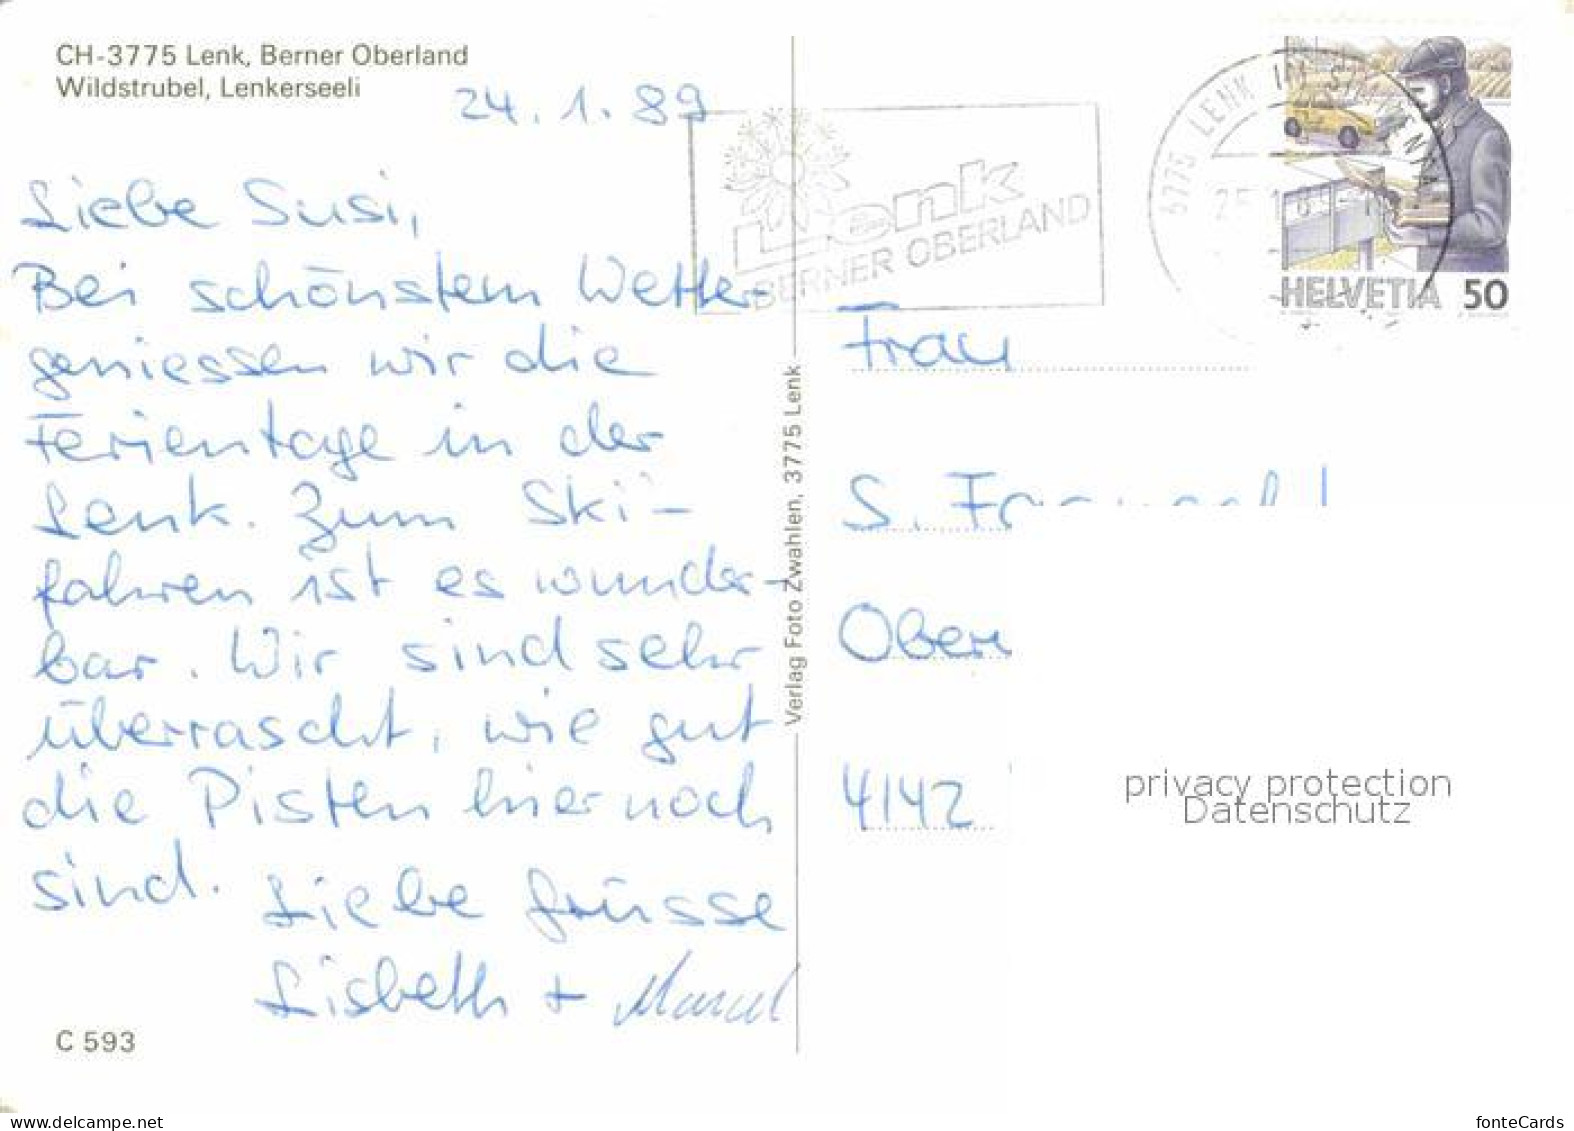 CH-3775 Lenk, Berner Oberland
Wildstrubel, Lenkerseeli
24. 1. 89
Liebe Susi,
Bei schönstem Wetter
geniessen wir die
Ferientage in der
Lenk. Zum Ski-
fahren ist es wunder-
bar. Wir sind sehr
überrascht, wie gut
die Pisten hier noch
sind.
Liebe Grüsse
Lisbeth + Marcel
C 593
Verlag Foto Zwahlen, 3775 Lenk
Lenk
BERNER OBERLAND
3775 LENK IM SIMMENTAL
HELVETIA 50
Frau
S.
Ober
4142
privacy protection
Datenschutz
www.delcampe.net
fonteCards